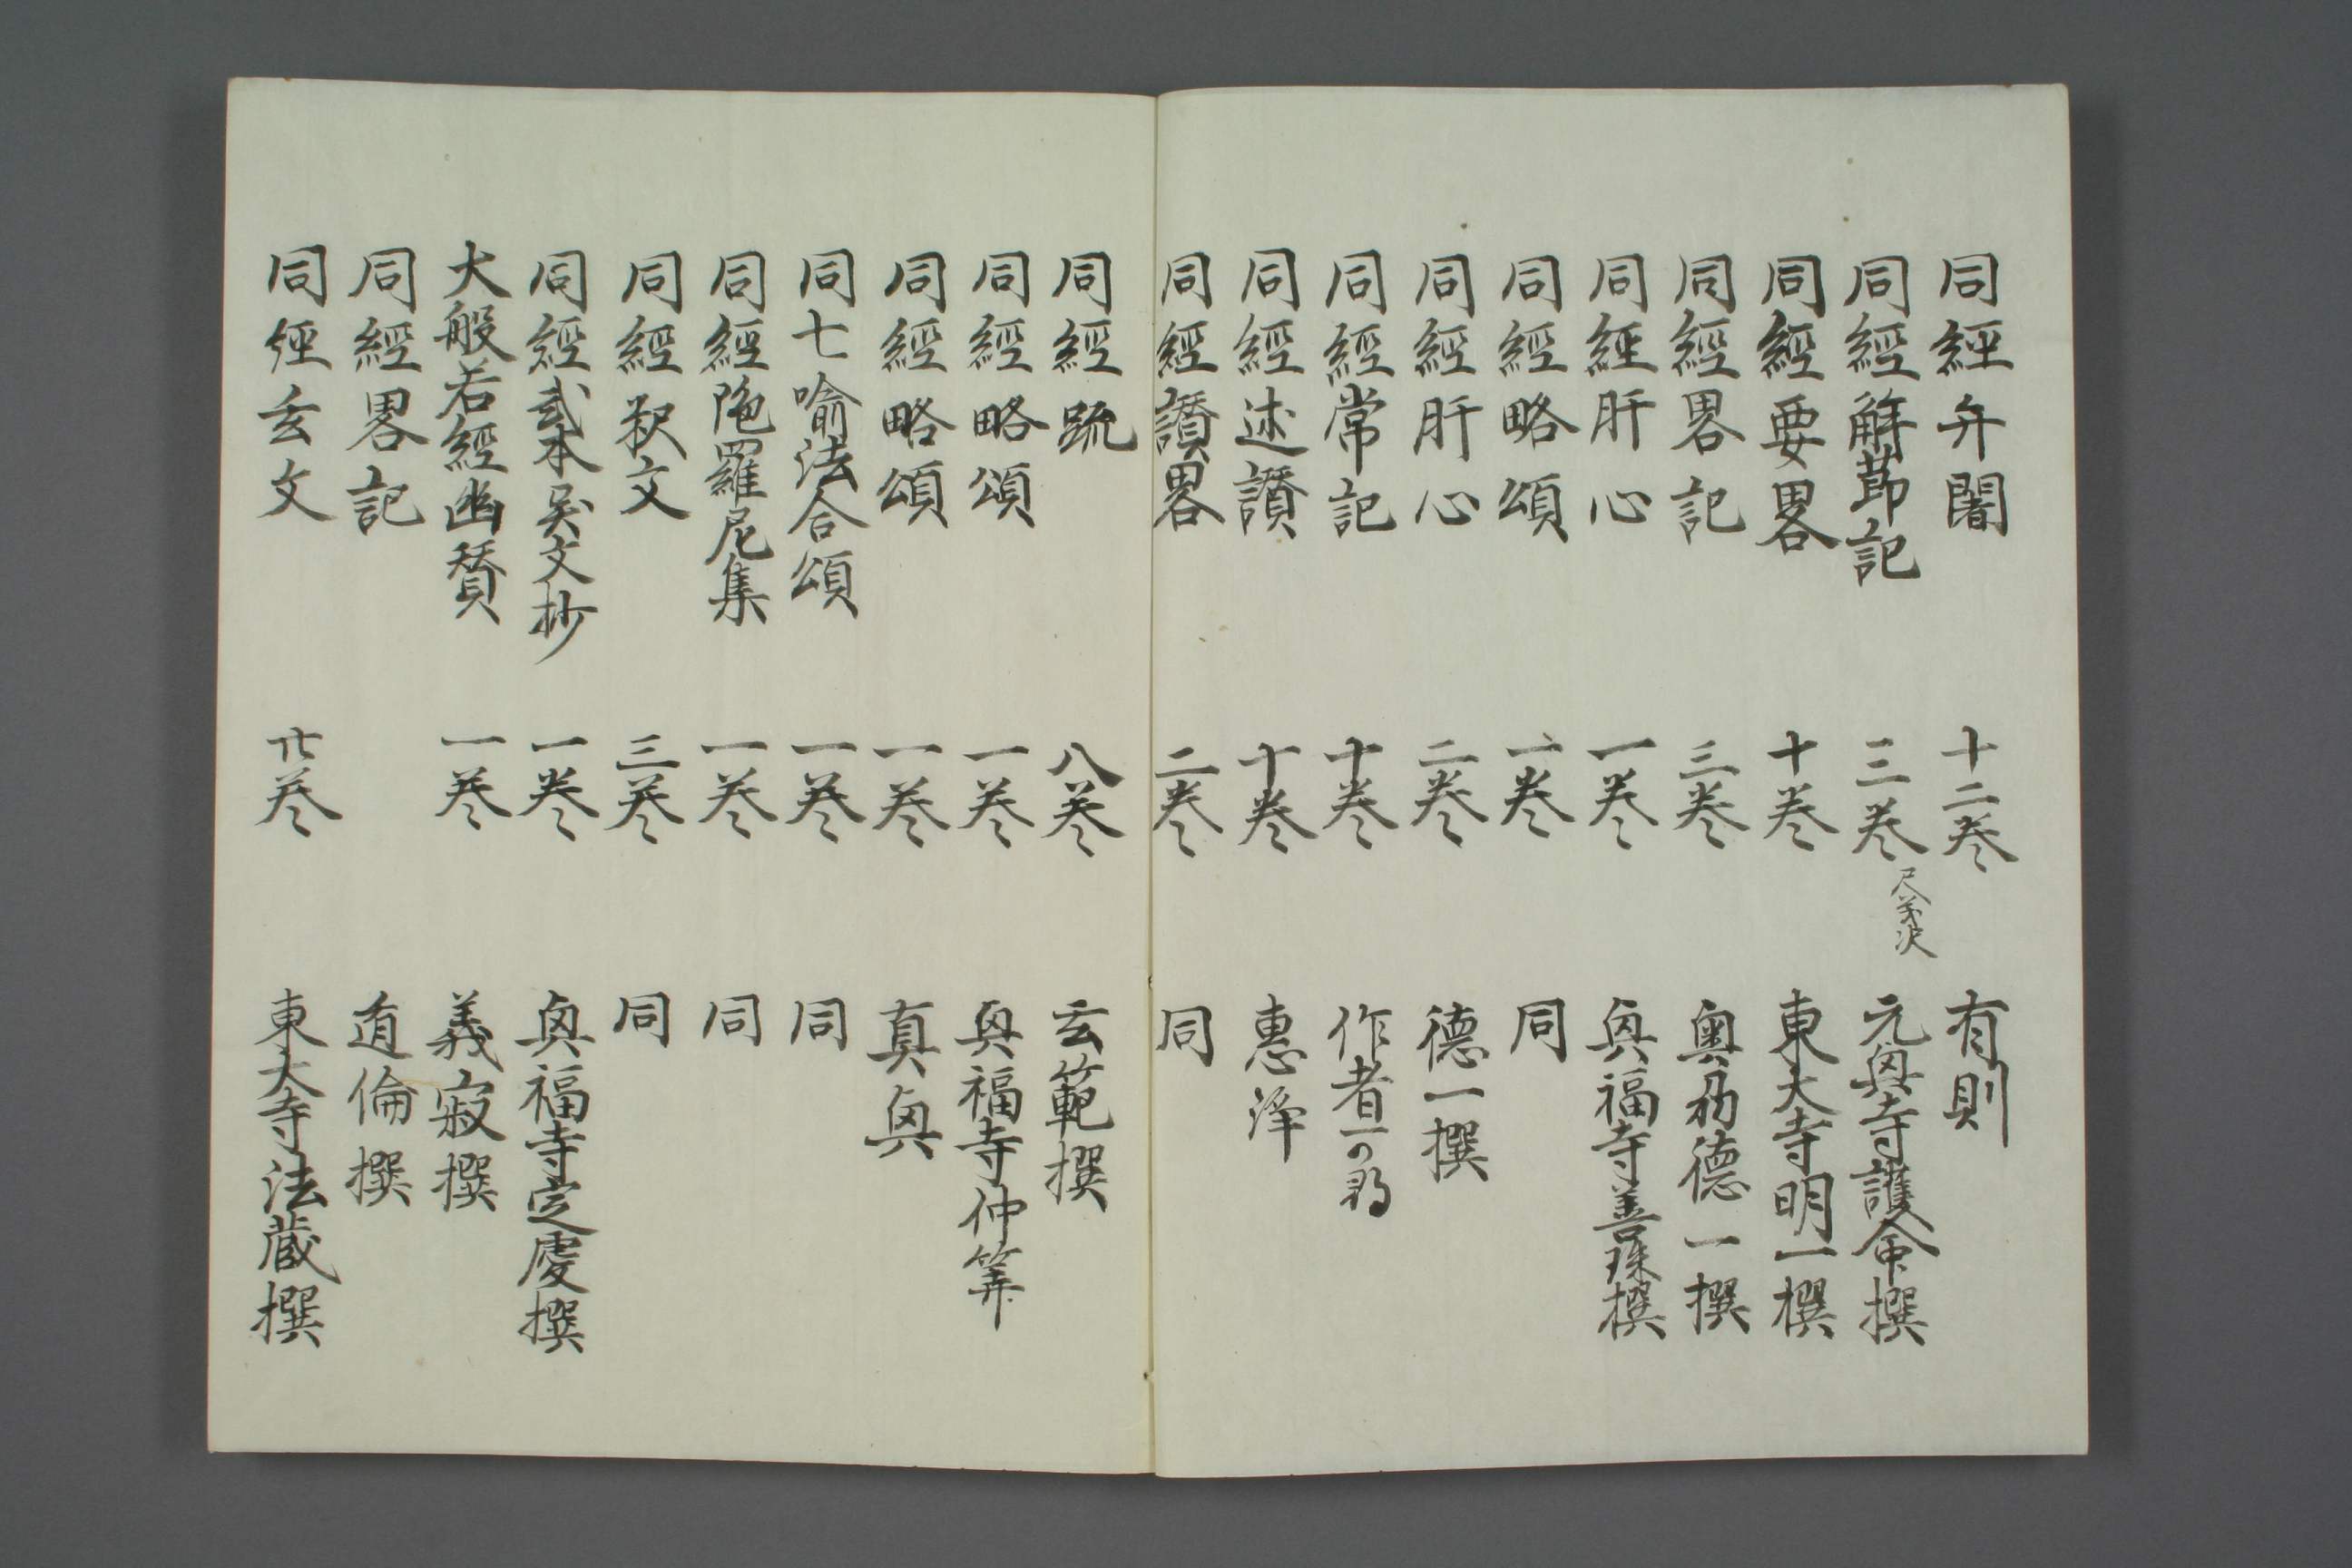 同經弁闇 十二巻 有則
同經解節記 三巻 尺義決 元興寺護命撰
同經要畧 十巻 東大寺明一撰
同經畧記 三巻 奥州德一撰
同經肝心 一巻 興福寺善珠撰
同經略頌 一巻 同
同經肝心 二巻 德一撰
同經常記 十巻 作者可尋
同經述讃 十巻 惠淨
同經讃畧 二巻 同
同經疏 八巻 玄範撰
同經略頌 一巻 興福寺仲筭
同經略頌 一巻 真興
同七喻法合頌 一巻 同
同經陁羅尼集 一巻 同
同經釈文 三巻 同
同經貳本異文抄 一巻 興福寺定慶撰
大般若經幽賛 一巻 義寂撰
同經畧記 道倫撰
同經玄文 廿巻 東大寺法蔵撰